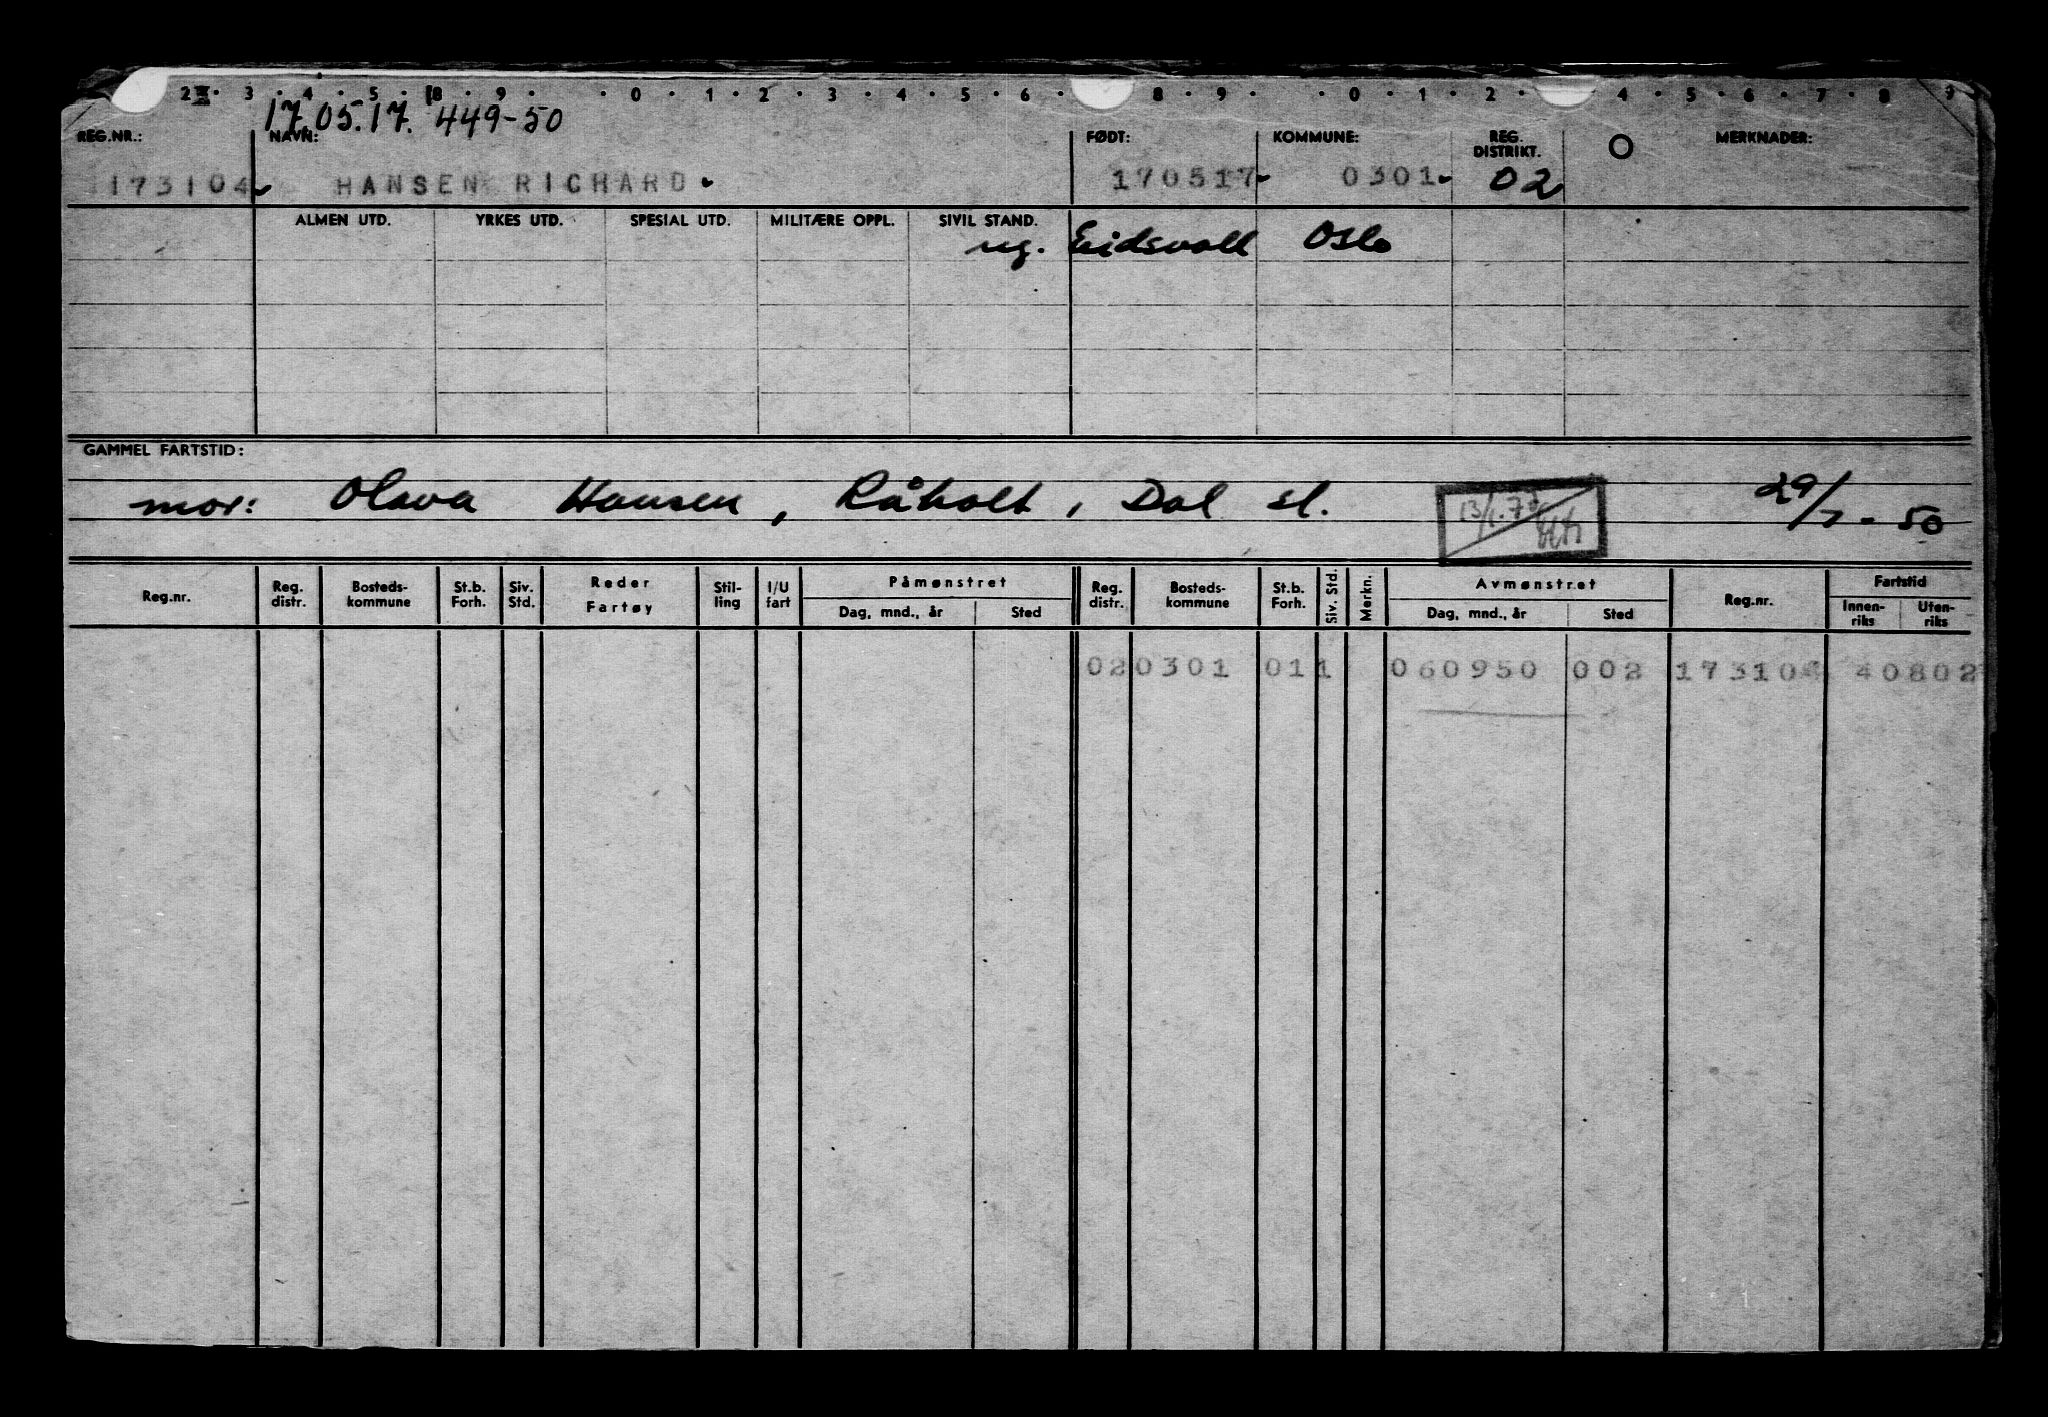 2 3 · 4 · 5 · 8 · 9 · · 0 · 1 · 2 · 3 · 4 · 5 · 6 · 8 · 9 · · 0 · 1 · 2 · 4 · 5 · 6 · 7 · 8 · 9
17.05.17. 449-50
REG.NR.: NAVN: FØDT: KOMMUNE: REG. DISTRIKT. MERKNADER:
173104 HANSEN RICHARD 170517 0301 02
ALMEN UTD. YRKES UTD. SPESIAL UTD. MILITÆRE OPPL. SIVIL STAND.
ug. Eidsvoll Oslo
GAMMEL FARTSTID:
mor: Olava Hansen, Råholt, Dal st. 29/7-50
Reg.nr. Reg. distr. Bosteds-kommune St.b. Forh. Siv. Std. Reder Fartøy Stil-ling I/U fart Påmønstret Dag, mnd., år Sted Reg. distr. Bosteds-kommune St.b. Forh. Siv. Std. Merkn. Avmønstret Dag, mnd., år Sted Reg.nr. Fartstid Innen-riks Uten-riks
02 0301 011 060950 002 173104 40802